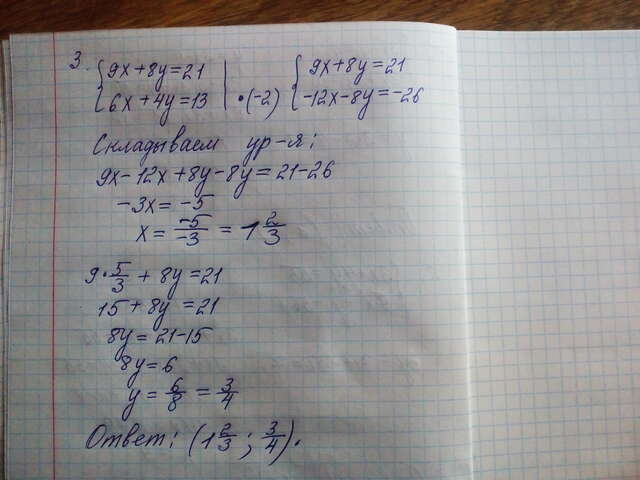 3. {9x+8y=21 | {9x+8y=21
{6x+4y=13 | •(-2) {-12x-8y=-26
Складываем ур-я:
9x-12x+8y-8y=21-26
-3x=-5
x=-5/-3=1 2/3
9•5/3+8y=21
15+8y=21
8y=21-15
8y=6
y=6/8=3/4
Ответ: (1 2/3; 3/4).